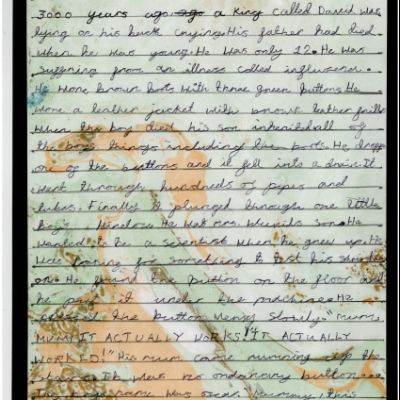 3000 years ago ago a King called David was
lying on his back crying. His father had died
when he was young. He was only 12. He was
suffering from an illness called influenza.
He wore brown boots with three green buttons. He
wore a leather jacket with brown leather frills
When the boy died his son inherits all of
the boys things including his boots. He drops
one of the buttons and it fell into a drain. It
went through hundreds of pipes and
tubes. Finally it plunged through one little
boy's window. He was son. He
wanted to be a scientist when he grew up. He
was looking for something to test his
on. He found the button on the floor and
he put it under the machine. He
pressed the button very slowly. "mum,
MUM IT ACTUALLY WORKS! IT ACTUALLY
WORKED!" His mum came running up the
stairs. It was no ordinary button.
The boys name was mummy, this